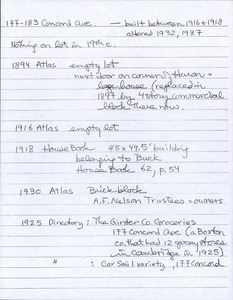 177-183 Concord Ave. — built between 1916 + 1918
altered 1932, 1937
Nothing on lot in 19th c.
1894 Atlas empty lot
next door on corner of Huron =
large house (replaced in
1897 by 4 story commercial
block there now.
1916 Atlas empty lot
1918 House Book 45 x 49.5' building
belonging to Buck
House Book 62, p. 54
1930 Atlas Brick block
A.F. Nelson Trustees = owners
1925 Directory: The Ginter Co. Groceries
177 Concord Ave (a Boston
co. that had 12 grocery stores
in Cambridge in 1925)
" : Car Smil variety, 177 Concord